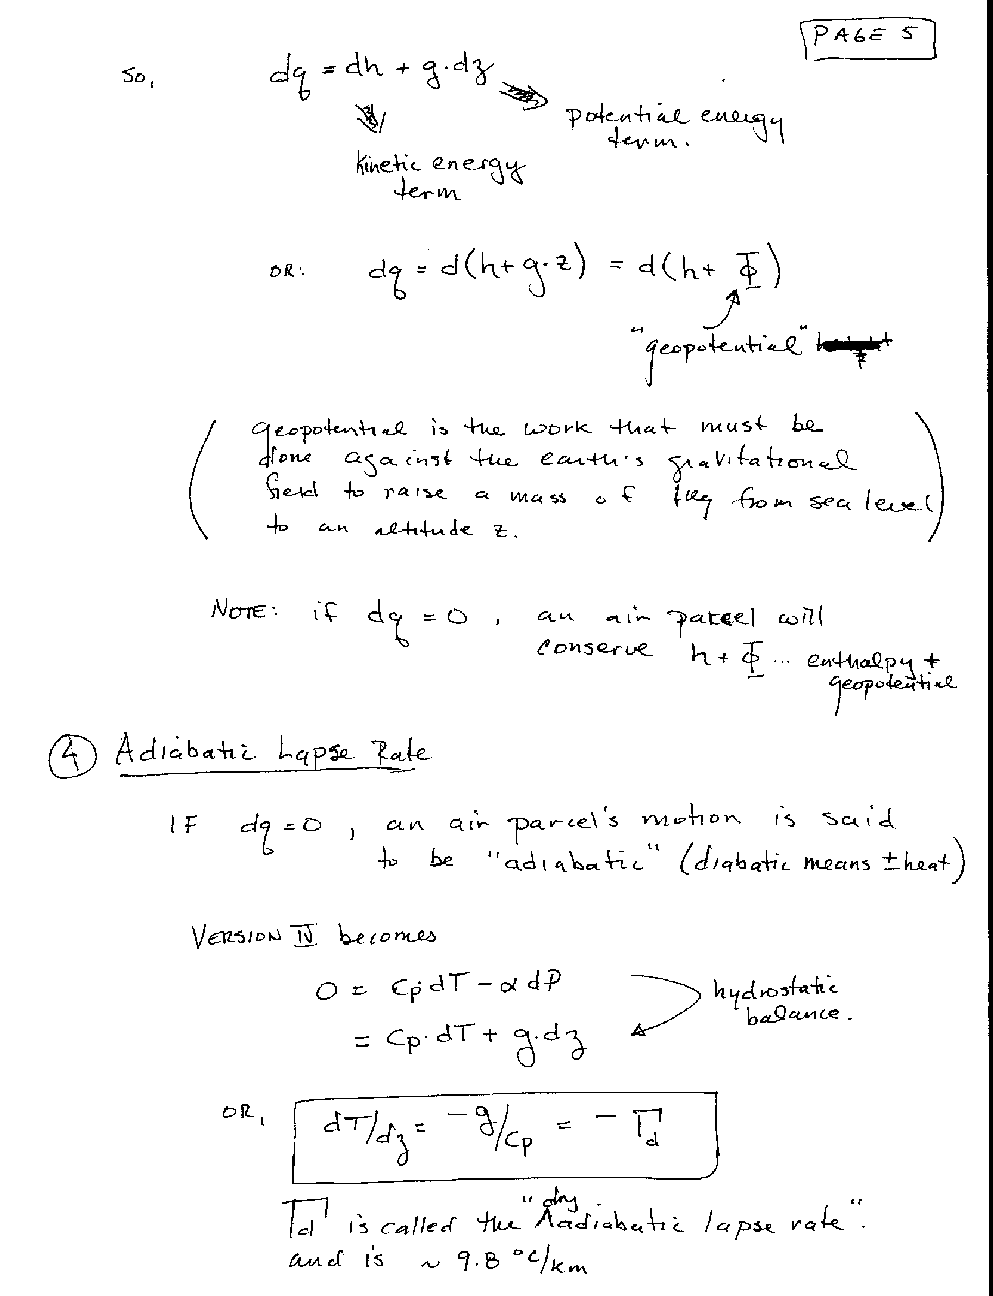 PAGE 5
So, dq = dh + g·dz
potential energy
term.
kinetic energy
term
OR: dq = d(h+g·z) = d(h+ Φ)
"geopotential"
(geopotential is the work that must be
done against the earth's gravitational
field to raise a mass of 1kg from sea level
to an altitude z.)
NOTE: if dq = 0, an air parcel will
conserve h + Φ ... enthalpy +
geopotential
④ Adiabatic Lapse Rate
IF dq = 0, an air parcel's motion is said
to be "adiabatic" (diabatic means ± heat)
VERSION IV becomes
0 = Cp dT - α dP
hydrostatic
balance.
= Cp·dT + g·dz
OR, dT/dz = -g/Cp = - Γd
Γd is called the "dry adiabatic lapse rate".
and is ~ 9.8 °C/km